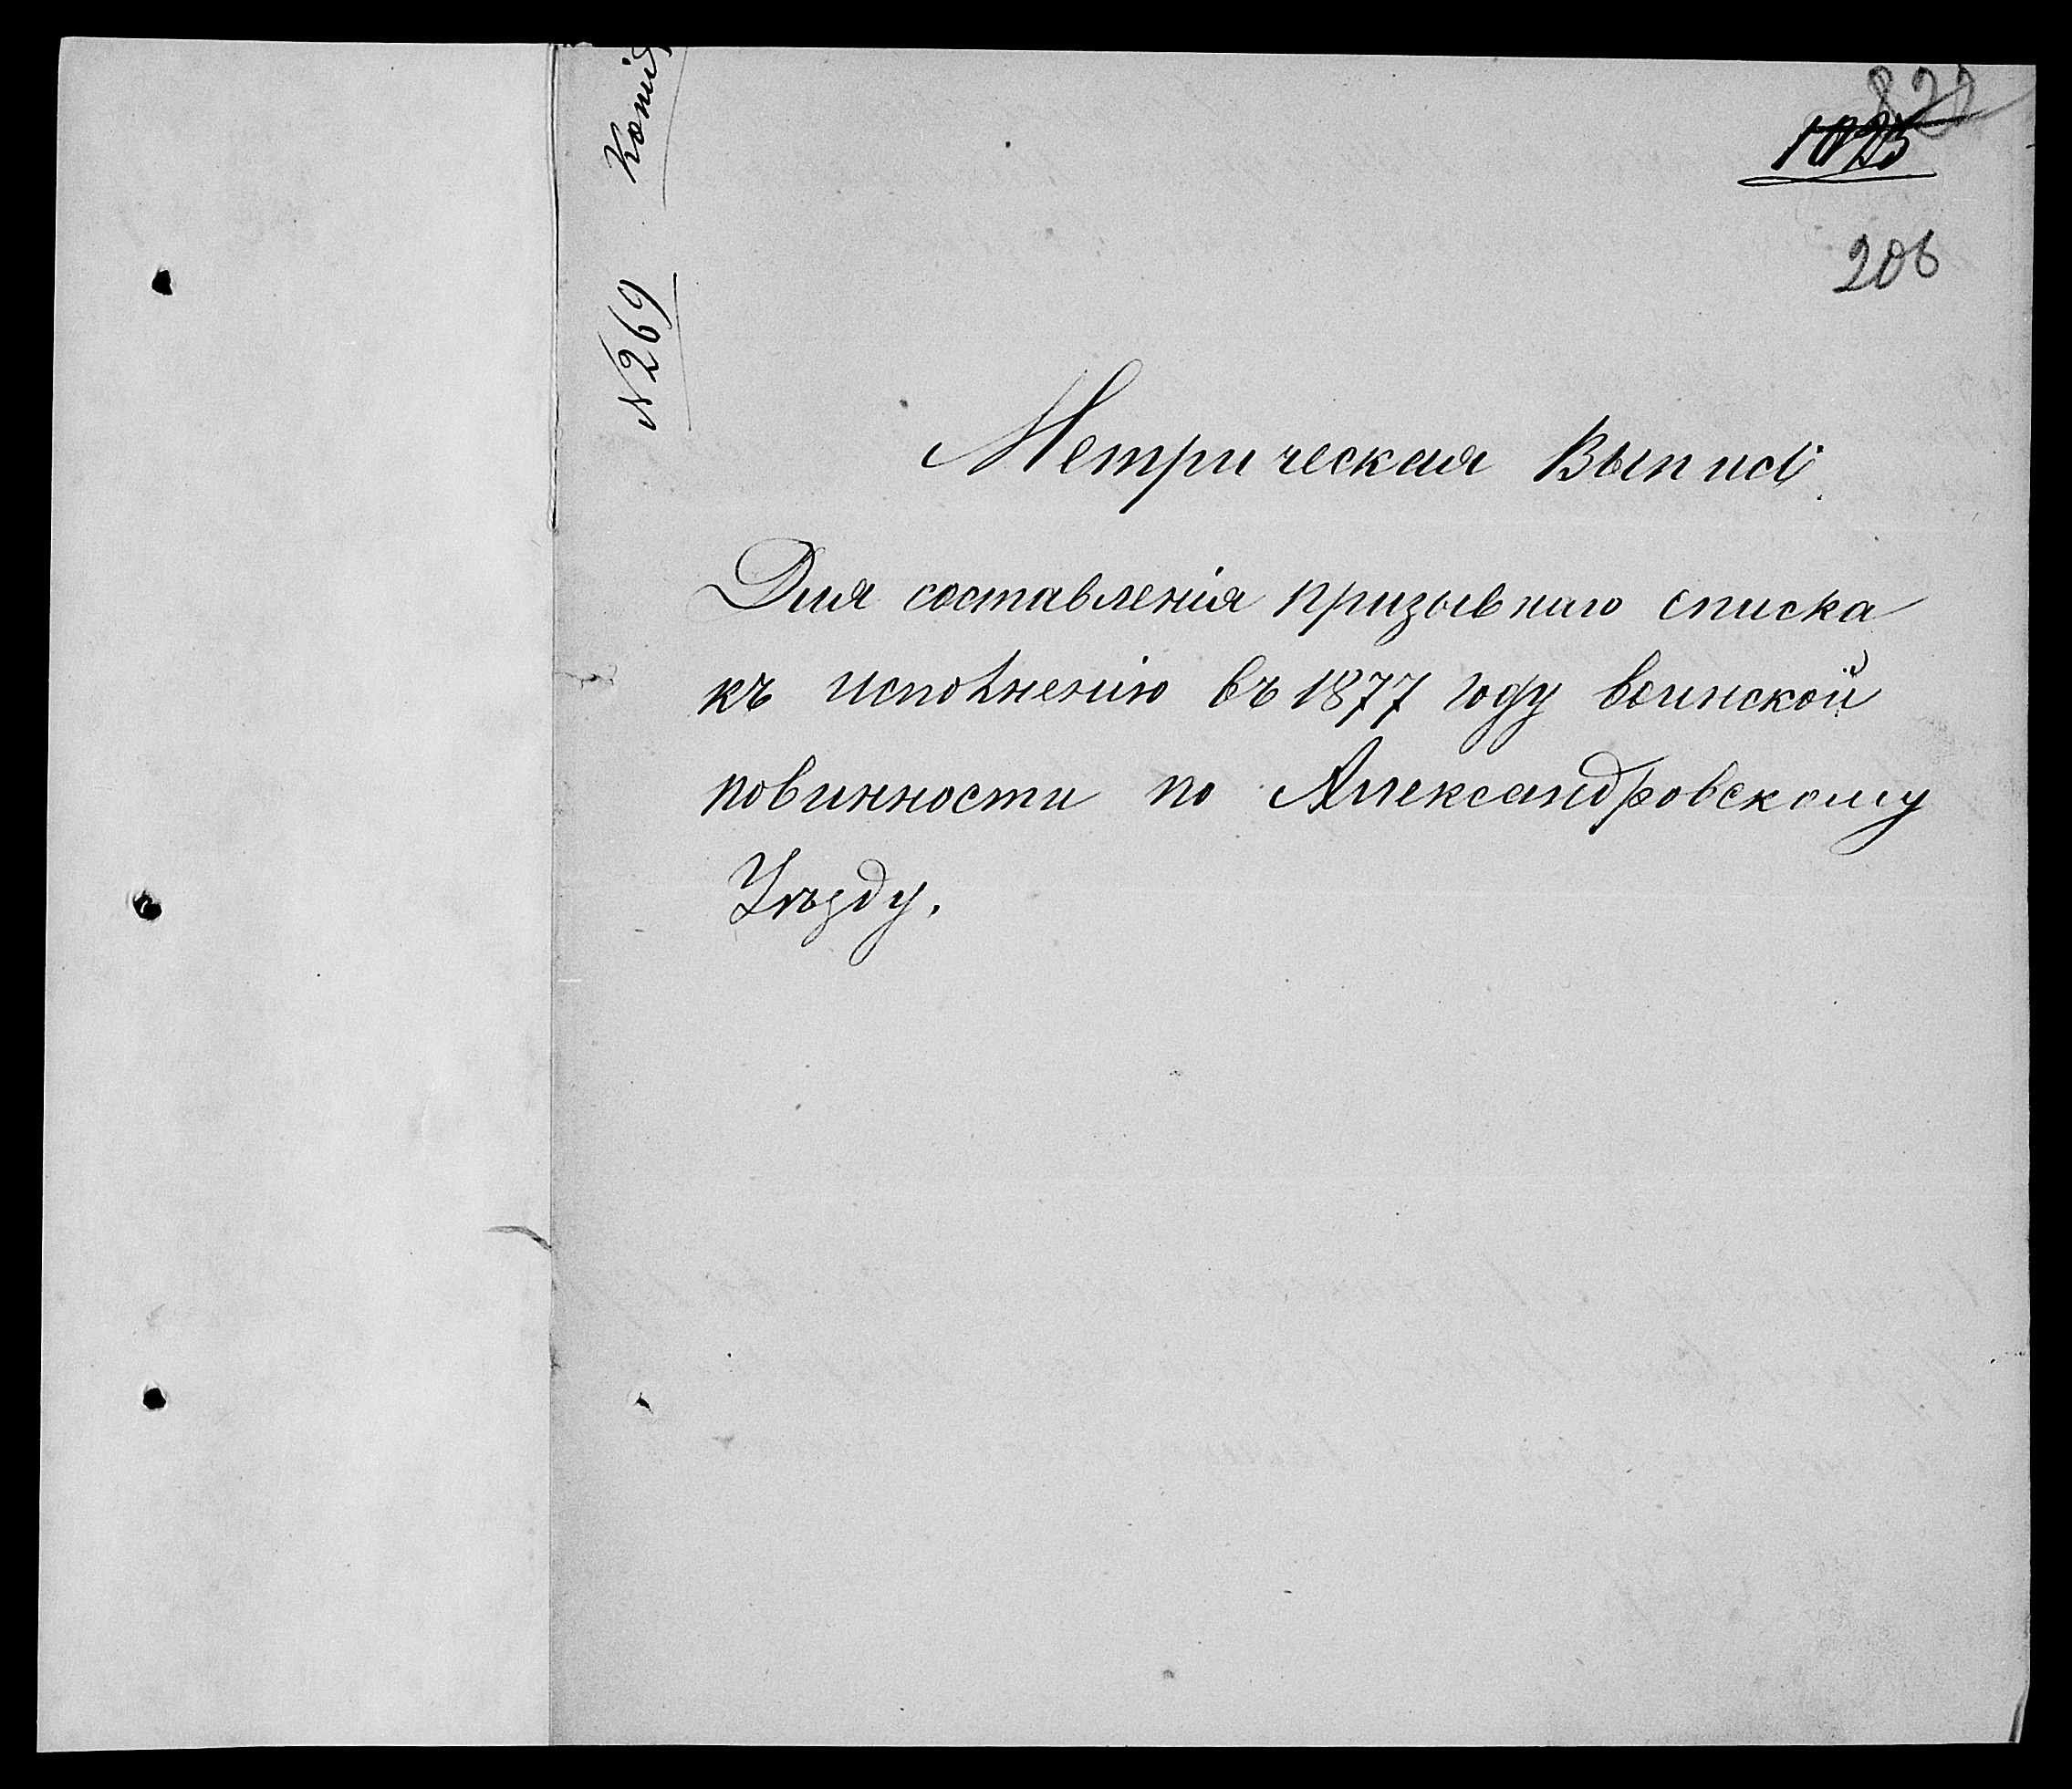 822
206
N 269 Копія
Метрическая Выпись
Для составленія призывнаго списка
къ исполненію въ 1877 году воинской
повинности по Александровскому
Уѣзду.